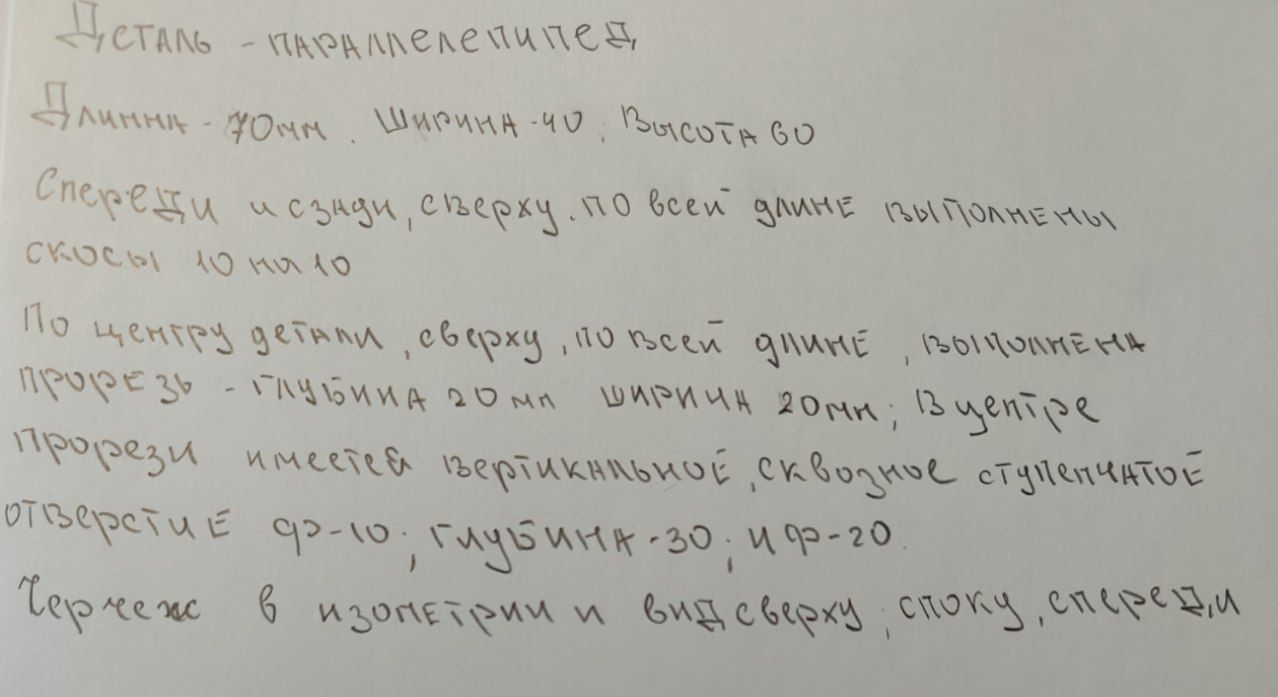 Деталь - параллелепипед
Длинна - 70мм. Ширина - 40, Высота 60
Спереди и сзади, сверху, по всей длине выполнены
скосы 10 на 10
По центру детали, сверху, по всей длине, выполнена
прорезь - глубина 20мм ширина 20мм; В центре
прорези имеется вертикальное, сквозное ступенчатое
отверстие ф-10; глубина-30; и ф-20.
Чертеж в изометрии и вид сверху, сбоку, спереди